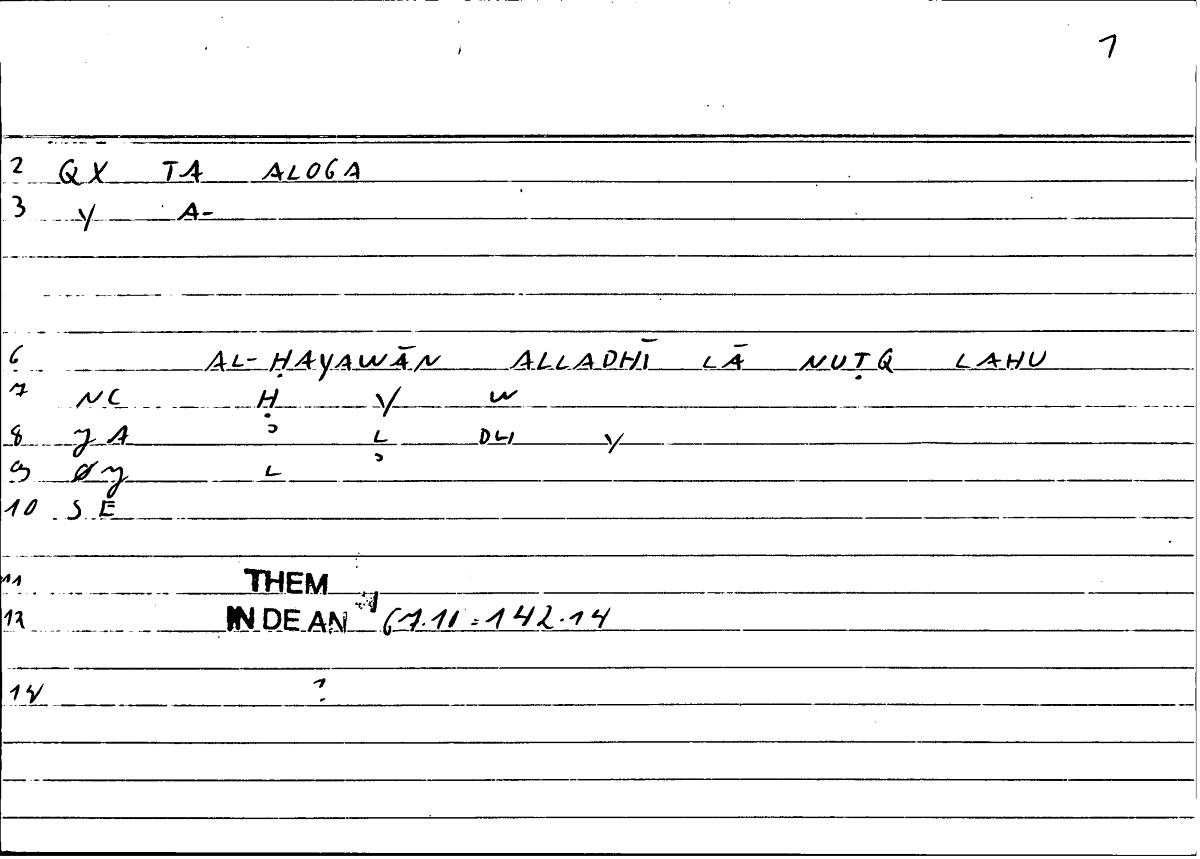 1
2 QX TA ALOGA
3 Y A-
6 AL-ḤAYAWĀN ALLADHĪ LĀ NUṬQ LAHU
7 NC Ḥ Y W
8 JA Ḥ L DH Y
9 ØJ L
10 SE
11 THEM
12 IN DE AN 67.10 = 142.14
14 ?